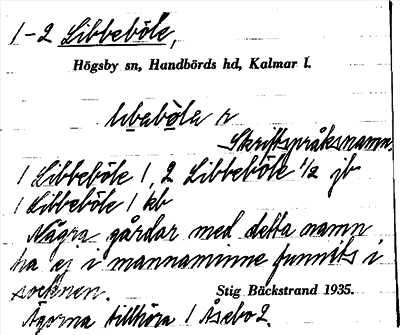 1-2 Libbeböle,
Högsby sn, Handbörds hd, Kalmar l.
libeböla r
Skriftspråksnamn.
1 Libbeböle 1, 2 Libbeböle 1/2 jb
1 Libbeböle 1 kb
Några gårdar med detta namn
ha ej i mannaminne funnits i
socknen. Stig Bäckstrand 1935.
Ägorna tillhöra 1 Åsebo 2.